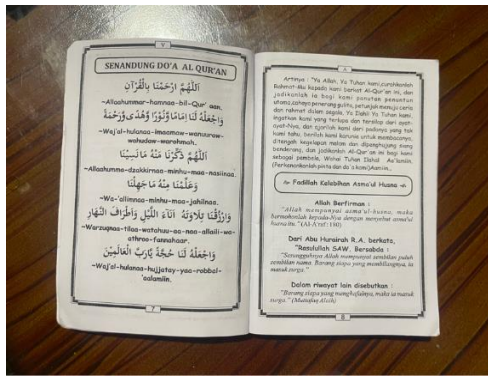 ٧
SENANDUNG DO'A AL QUR'AN
اَللّٰهُمَّ ارْحَمْنَا بِالْقُرْآنِ
-Allaahummar-hamnaa-bil-Qur'aan,
وَاجْعَلْهُ لَنَا اِمَامًا وَّنُوْرًا وَّهُدًى وَّرَحْمَةً
-Waj'al-hulanaa-imaamaw-wanuuraw-
wahudaw-warahmah.
اَللّٰهُمَّ ذَكِّرْنَا مِنْهُ مَا نَسِيْنَا
-Allaahumma-dzakkirnaa-minhu-maa-nasiinaa.
وَعَلِّمْنَا مِنْهُ مَا جَهِلْنَا
-Wa-'alimnaa-minhu-maa-jahilnaa.
وَارْزُقْنَا تِلَاوَتَهُ اٰنَآءَ اللَّيْلِ وَاَطْرَافَ النَّهَارِ
-Warzuqnaa-tilaa-watahuu-aa-naa-allaili-wa-
athraa-fannahaar.
وَاجْعَلْهُ لَنَا حُجَّةً يَّارَبَّ الْعَالَمِيْنَ
-Waj'al-hulanaa-hujjatay-yaa-rabbal-
'aalamiin.
7
٨
Artinya : "Ya Allah, Ya Tuhan kami,curahkanlah
Rahmat-Mu kepada kami berkat Al-Qur'an ini, dan
jadikanlah ia bagi kami panutan penuntun
utama,cahaya penerang gulita, petunjuk menuju ceria
dan rahmat dalam segala. Ya Ilahi Ya Tuhan kami,
ingatkan kami yang terlupa dan tersilap dari ayat-
ayat-Nya, dan ajarilah kami dari padanya yang tak
kami tahu, berilah kami karunia untuk membacanya,
ditengah kegelapan malam dan dipenghujung siang
benderang, dan jadikanlah Al-Qur'an ini bagi kami
sebagai pembela, Wahai Tuhan Ilahul Aa'lamiin.
(Perkenankanlah pinta dan do'a kami)Aamiin...
Fadillah Kelebihan Asma'ul Husna
Allah Berfirman :
"Allah mempunyai asma'ul-husna, maka
bermohonlah kepada-Nya dengan menyebut asma'ul
husna itu." (Al-A'raf : 180)
Dari Abu Hurairah R.A. berkata,
"Rasulullah SAW. Bersabda :
"Sesungguhnya Allah mempunyai sembilan puluh
sembilan nama. Barang siapa yang membilangnya, ia
masuk surga."
Dalam riwayat lain disebutkan :
"Barang siapa yang menghafalnya, maka ia masuk
surga." (Muttafaq Alaih)
8